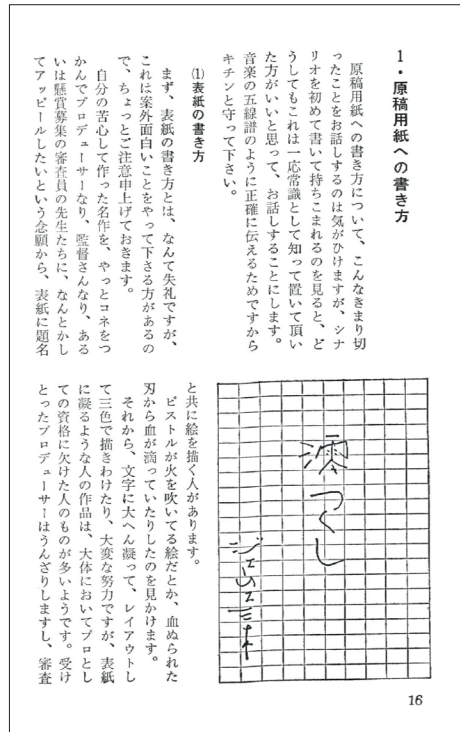 1・原稿用紙への書き方
原稿用紙への書き方について、こんなきまり切
ったことをお話しするのは気がひけますが、シナ
リオを初めて書いて持ちこまれるのを見ると、ど
うしてもこれは一応常識として知って置いて頂い
た方がいいと思って、お話しすることにします。
音楽の五線譜のように正確に伝えるためですから
キチンと守って下さい。
(1)表紙の書き方
まず、表紙の書き方とは、なんて失礼ですが、
これは案外面白いことをやって下さる方があるの
で、ちょっとご注意申上げておきます。
自分の苦心して作った名作を、やっとコネをつ
かんでプロデューサーなり、監督さんなり、ある
いは懸賞募集の審査員の先生たちに、なんとかし
てアッピールしたいという念願から、表紙に題名
つくし
と共に絵を描く人があります。
ピストルが火を吹いてる絵だとか、血ぬられた
刃から血が滴っていたりしたのを見かけます。
それから、文字に大へん凝って、レイアウトし
て三色で描きわけたり、大変な努力ですが、表紙
に凝るような人の作品は、大体においてプロとし
ての資格に欠けた人のものが多いようです。受け
とったプロデューサーはうんざりしますし、審査
16